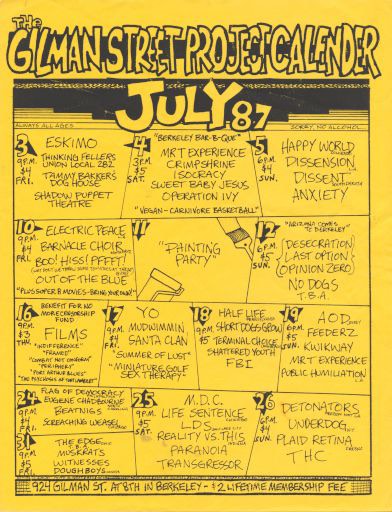 THE
GILMAN STREET PROJECT CALENDER
JULY 87
ALWAYS ALL AGES
SORRY, NO ALCOHOL
3
9 P.M.
$4
FRI.
ESKIMO
THINKING FELLERS
UNION LOCAL 282
TAMMY BAKKER'S
DOG HOUSE
SHADOW PUPPET
THEATRE
4
3 P.M.
$5
SAT.
"BERKELEY BAR-B-QUE"
MR T EXPERIENCE
CRIMPSHRINE
ISOCRACY
SWEET BABY JESUS
OPERATION IVY
"VEGAN-CARNIVORE BASKETBALL"
5
6 P.M.
$4
SUN.
HAPPY WORLD
DISSENSION
DISSENT
ANXIETY
10
9 P.M.
$4
FRI.
ELECTRIC PEACE
BARNACLE CHOIR
BOO! HISS! PFFFT!
OUT OF THE BLUE
"PLUS SUPER 8 MOVIES-BRING YOUR OWN!"
11
"PAINTING
PARTY"
12
6 P.M.
$5
SUN.
"ARIZONA COMES
TO BERKELEY"
DESECRATION
LAST OPTION
OPINION ZERO
NO DOGS
T.B.A.
16
9 P.M.
$3
THU.
BENEFIT FOR NO
MORE CENSORSHIP
FUND
FILMS
"INDIFFERENCE"
"FRAMED"
"COMBAT NOT CONFORM"
"PERIPHERY"
"PORT ARTHUR BLUES"
17
9 P.M.
$4
FRI.
YO
MUDWIMMIN
SANTA CLAN
"SUMMER OF LUST"
"MINIATURE GOLF
SEX THERAPY"
18
9 P.M.
$5
SAT.
HALF LIFE
SHORT DOGS GROW
TERMINAL CHOICE
SHATTERED YOUTH
FBI
19
6 P.M.
$5
SUN.
AOD
FEEDERZ
KWIKWAY
MR T EXPERIENCE
PUBLIC HUMILIATION
24
9 P.M.
$4
FRI.
FLAG OF DEMOCRACY
EUGENE CHADBOURNE
BEATNIGS
SCREACHING WEASEL
25
9 P.M.
$5
SAT.
M.D.C.
LIFE SENTENCE
LDS
REALITY VS. THIS
PARANOIA
TRANSGRESSOR
26
6 P.M.
$4
SUN.
DETONATORS
UNDERDOG
PLAID RETINA
THC
31
9 P.M.
$5
FRI.
THE EDGE
MUSKRATS
WITNESSES
DOUGHBOYS
924 GILMAN ST. AT 8TH IN BERKELEY - $2 LIFETIME MEMBERSHIP FEE